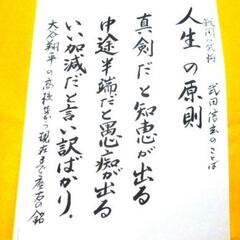 戦国の武将
武田信玄のことば
人生の原則
真剣だと知恵が出る
中途半端だと愚痴が出る
いい加減だと言い訳ばかり.
大谷翔平の高校生から現在まで座右の銘